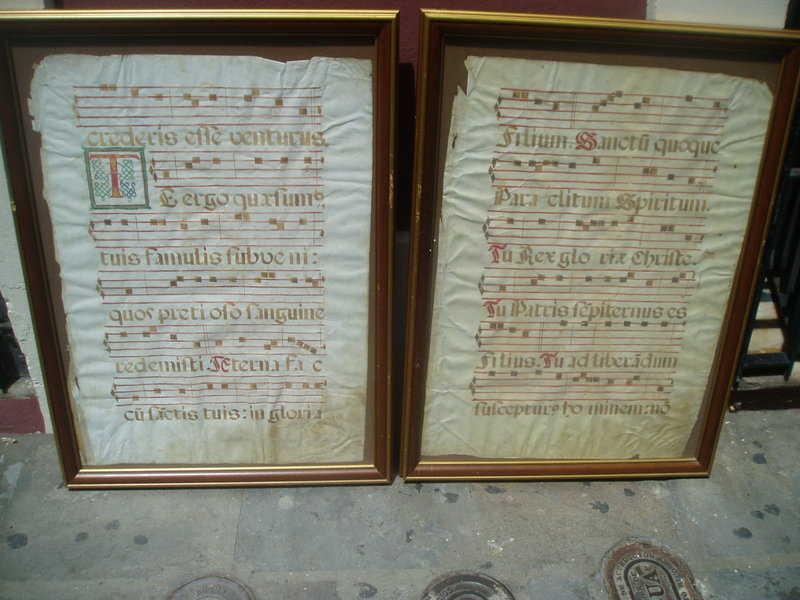 crederis esse venturus.
TE ergo quæsumꝰ
tuis famulis subve ni:
quos preti oso sanguine
redemisti. Æterna fa c
cū sāctis tuis: in gloria
Filium. Sanctū quoque
Para clitum Spiritum.
Tu Rex glo riæ Christe.
Tu Patris sēpiternus es
Filius. Tu ad liberādum
suscepturꝰ ho minem: nō
UA